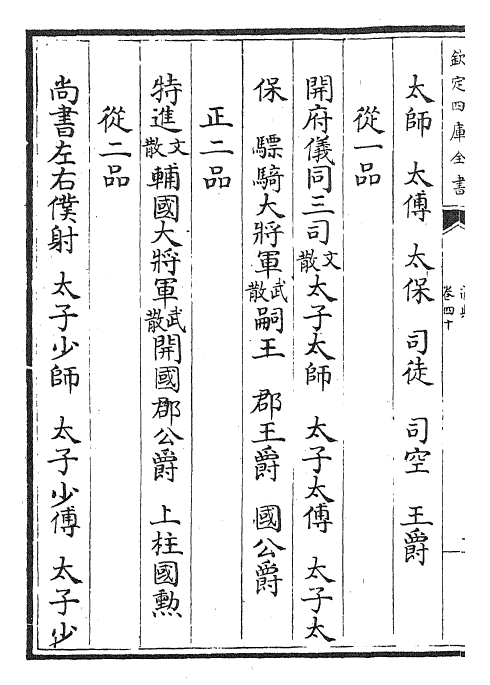 欽定四庫全書
卷四十
太師　太傅　太保　司徒　司空　王爵
從一品
開府儀同三司文散太子太師　太子太傅　太子太
保　驃騎大將軍武散嗣王　郡王爵　國公爵
正二品
特進文散輔國大將軍武散開國郡公爵　上柱國勲
從二品
尚書左右僕射　太子少師　太子少傅　太子少